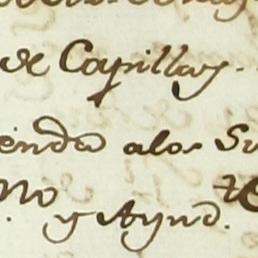 de Capillas
enda alos Su
no
y Aynd.